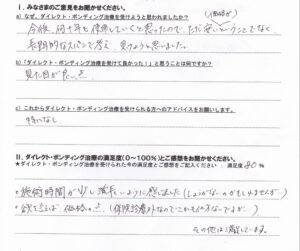 Ⅰ. みなさまのご意見をお聞かせください。
a) なぜ、ダイレクト・ボンディング治療を受けようと思われましたか？
今後、何十年も使用していくことと思ったので、ただ安いということでなく、
長期的なスパンで考え、受けようと思いました。
b)「ダイレクト・ボンディング治療を受けて良かった！」と思うことは何ですか？
見た目が良い点
c) これからダイレクト・ボンディング治療を受けられる方へのアドバイスをお願いします。
特になし
Ⅱ. ダイレクト・ボンディング治療の満足度（0～100%）とご感想をお聞かせください。
ダイレクト・ボンディング治療を受けられた今の満足度とご感想をご記入ください： 満足度 80 %
・施術時間が少し長いように感じました（しょうがないのかもしれませんが）
・欲を言えば 価格の点（保険診療外なのでこれも仕方ないですが。）
その他は満足しています。